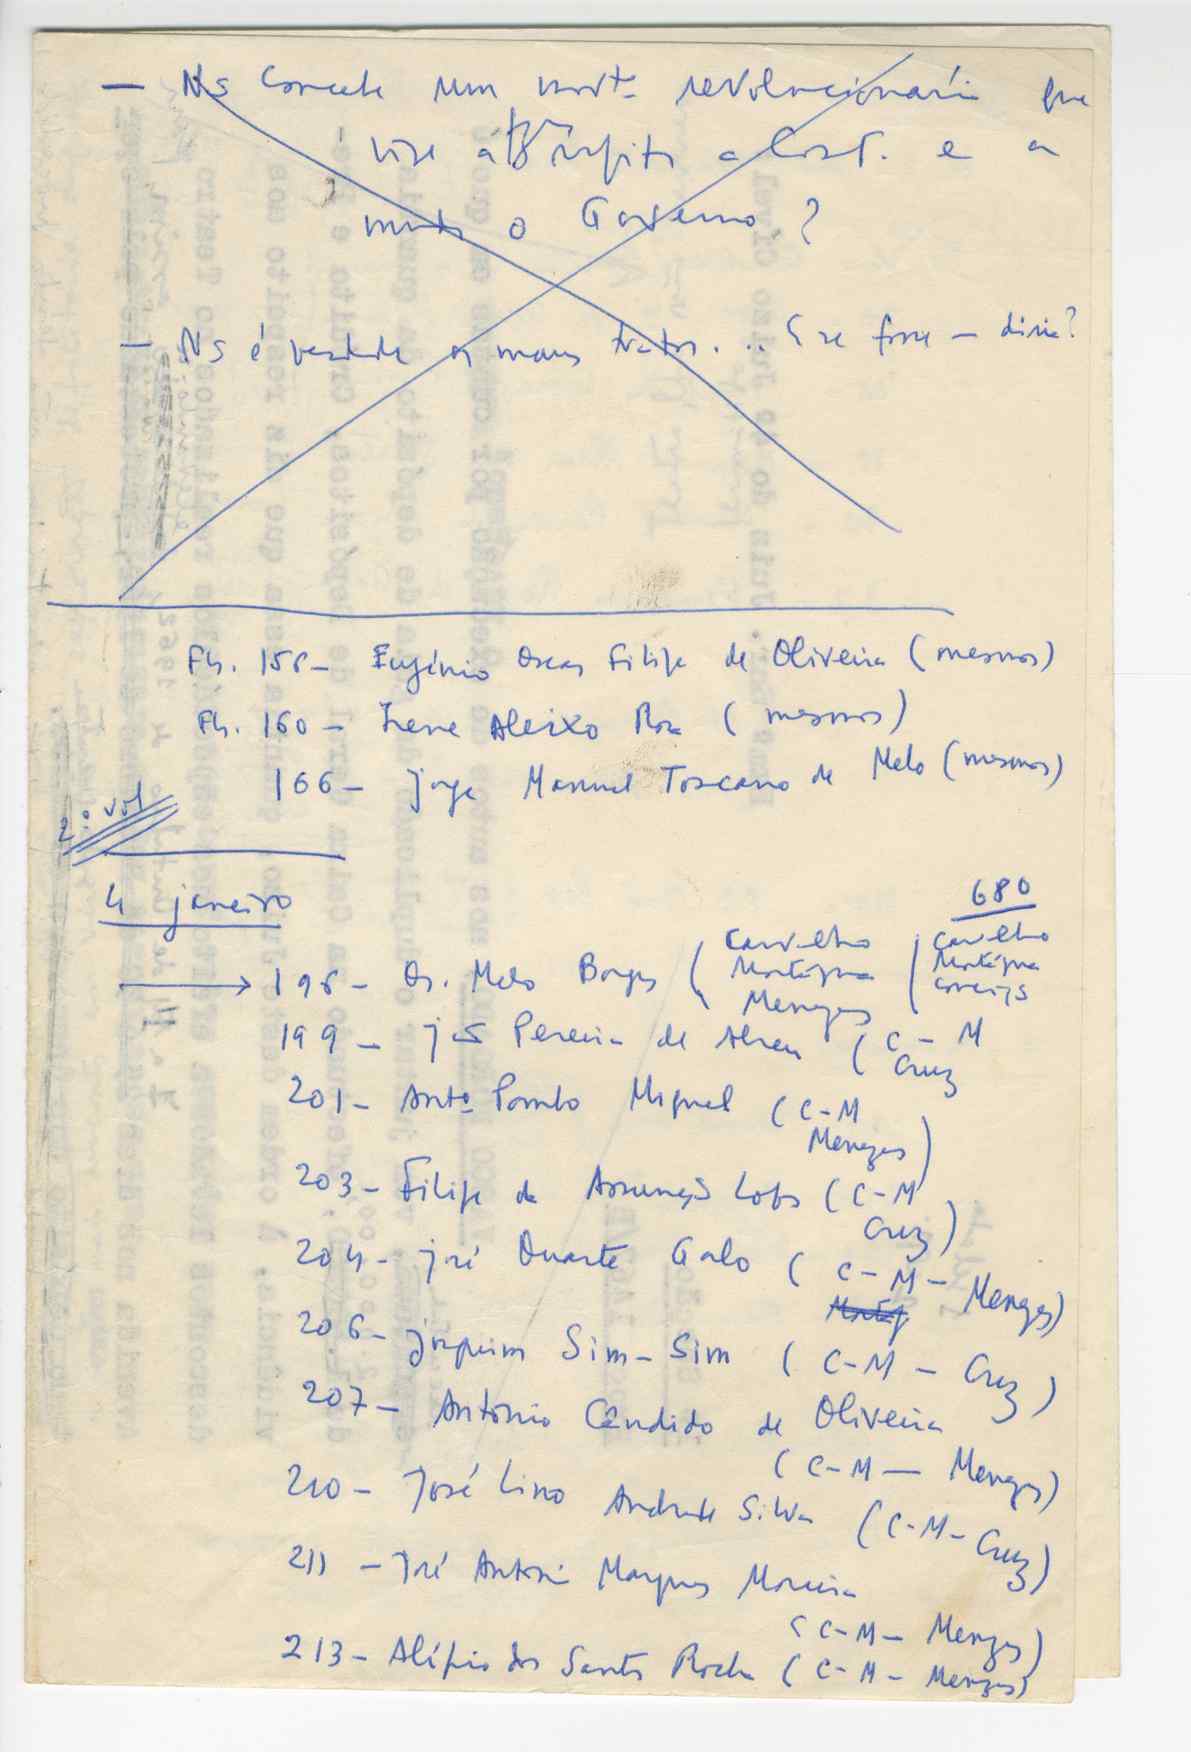 — Ns concebe um movtº revolucionário que
vise a
a Const. e a
o Governo?
— Ns é verdade os maus tratos... E se fosse — diria?
Fls. 158 — Eugénio Oscar Filipe de Oliveira (mesmos)
Fls. 160 — Irene Aleixo Rosa (mesmos)
166 — Jorge Manuel Toscano de Melo (mesmos)
2º vol
4 janeiro
680
→ 196 — Dr. Melo Borges ( Carvalho ( Carvalho
Mortágua Mortágua
Menezes
199 — José Pereira de Abreu ( C — M
Cruz
201 — Antº Pombo Miguel ( C-M
Menezes )
203 — Filipe da Assunção Lobo ( C-M
Cruz )
204 — José Duarte Galo ( C — M — Menezes )
206 — Joaquim Sim-Sim ( C-M — Cruz )
207 — António Cândido de Oliveira
( C-M — Menezes )
210 — José Lino Andrade Silva ( C-M — Cruz )
211 — José António Marques Moreira
( C-M — Menezes )
213 — Alípio dos Santos Rocha ( C-M — Menezes )